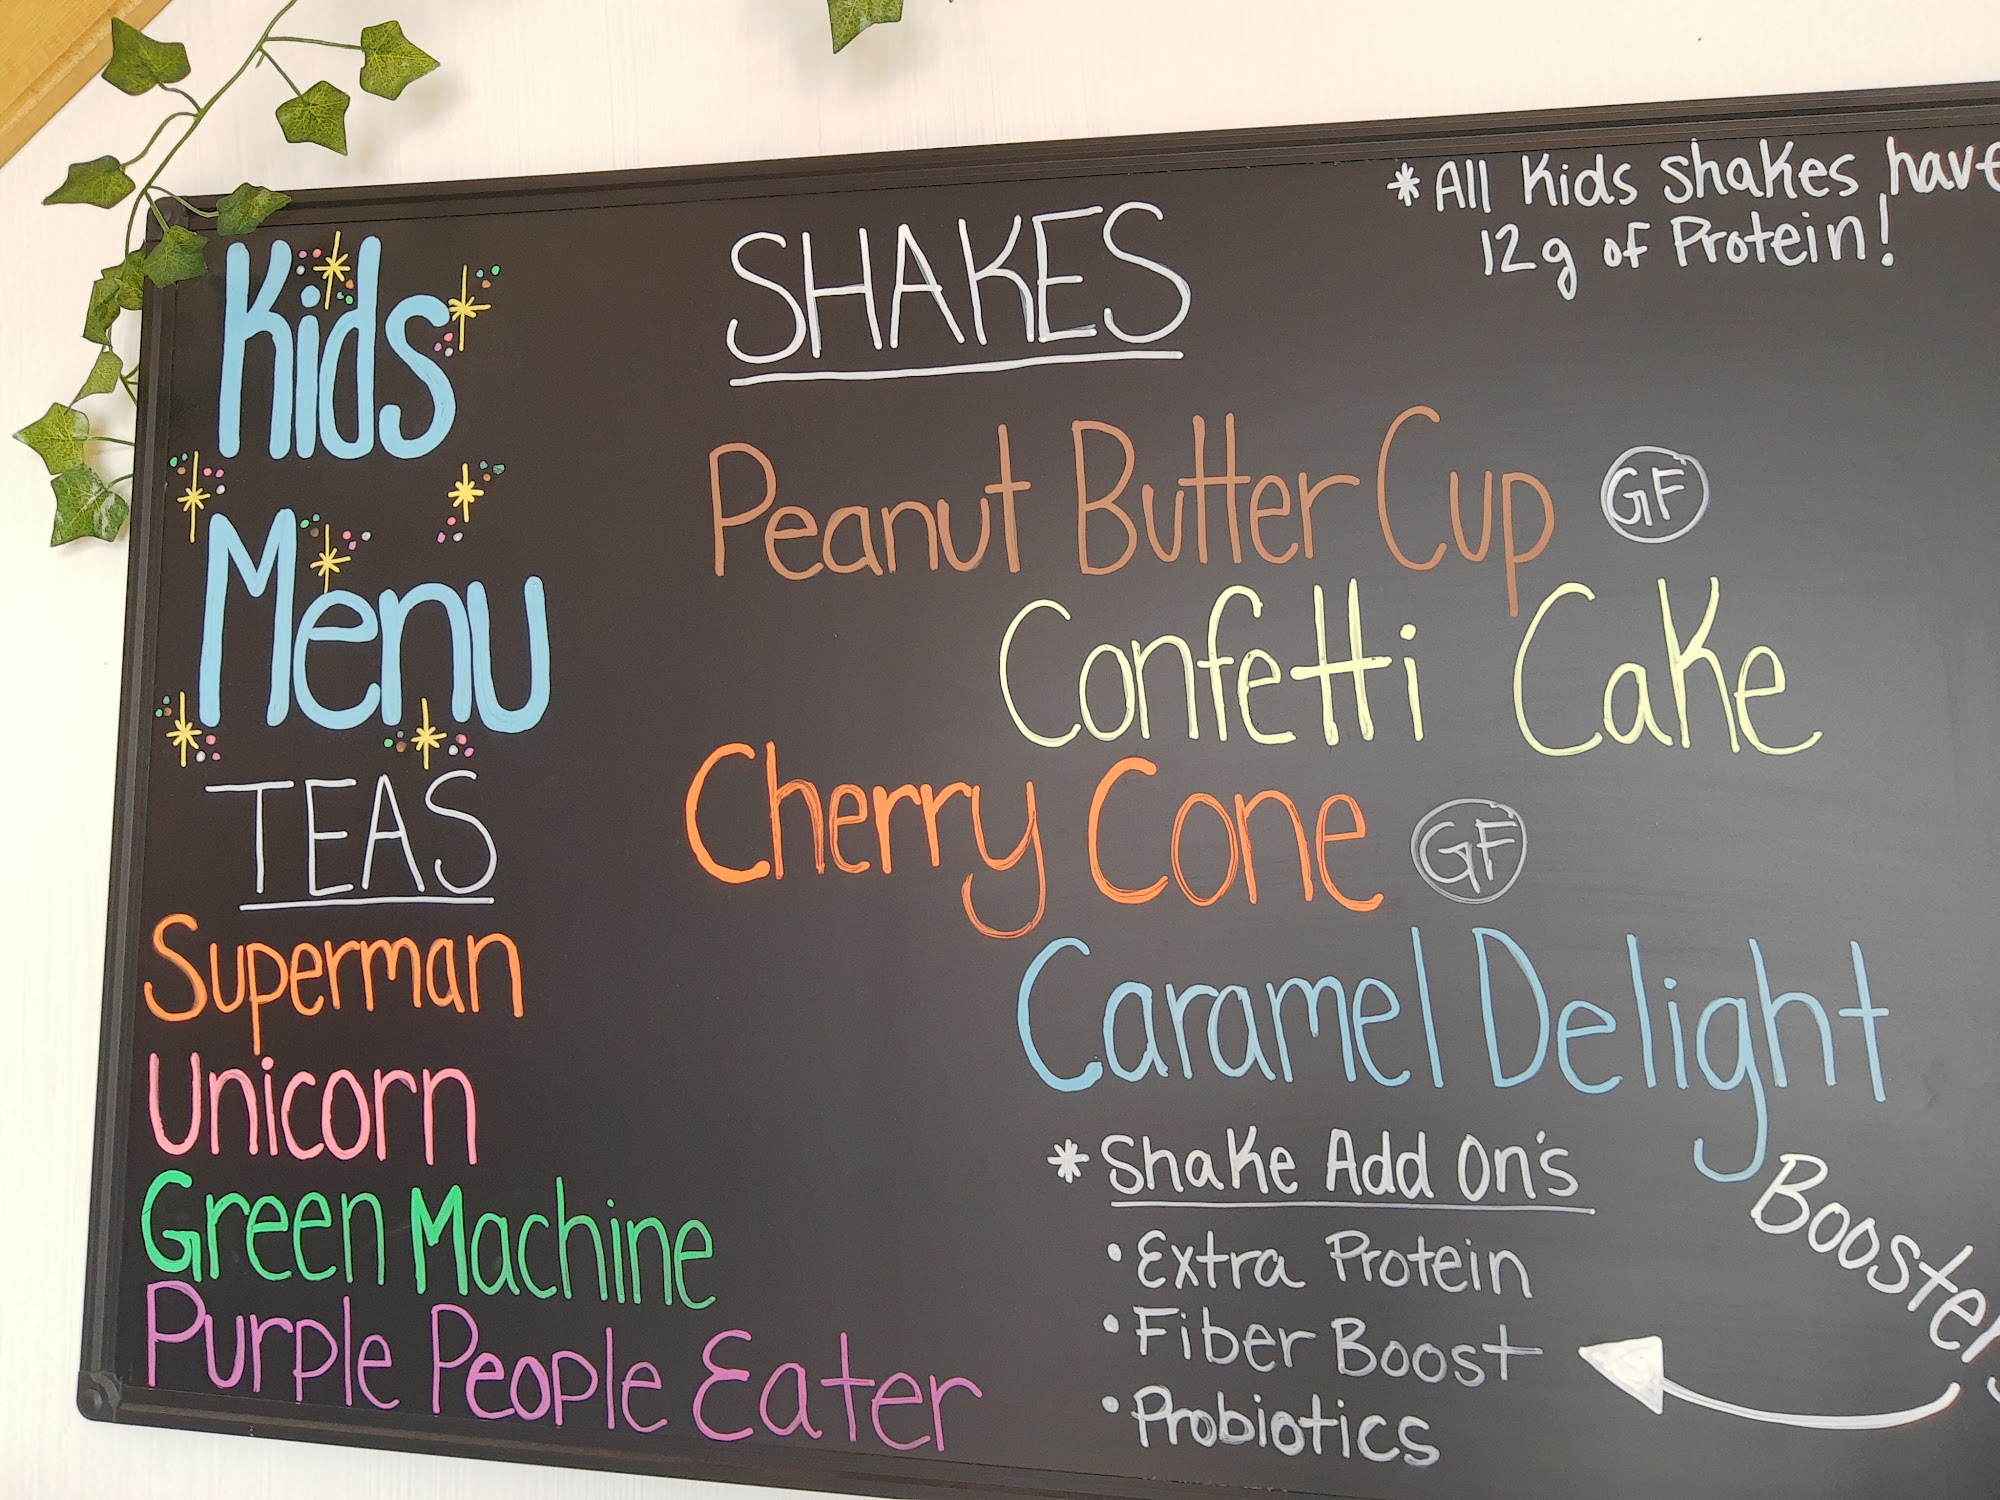 Kids
Menu
TEAS
Superman
Unicorn
Green Machine
Purple People Eater
SHAKES
*All Kids Shakes have
12g of Protein!
Peanut Butter Cup GF
Confetti Cake
Cherry Cone GF
Caramel Delight
*Shake Add On's
•Extra Protein
•Fiber Boost
•Probiotics